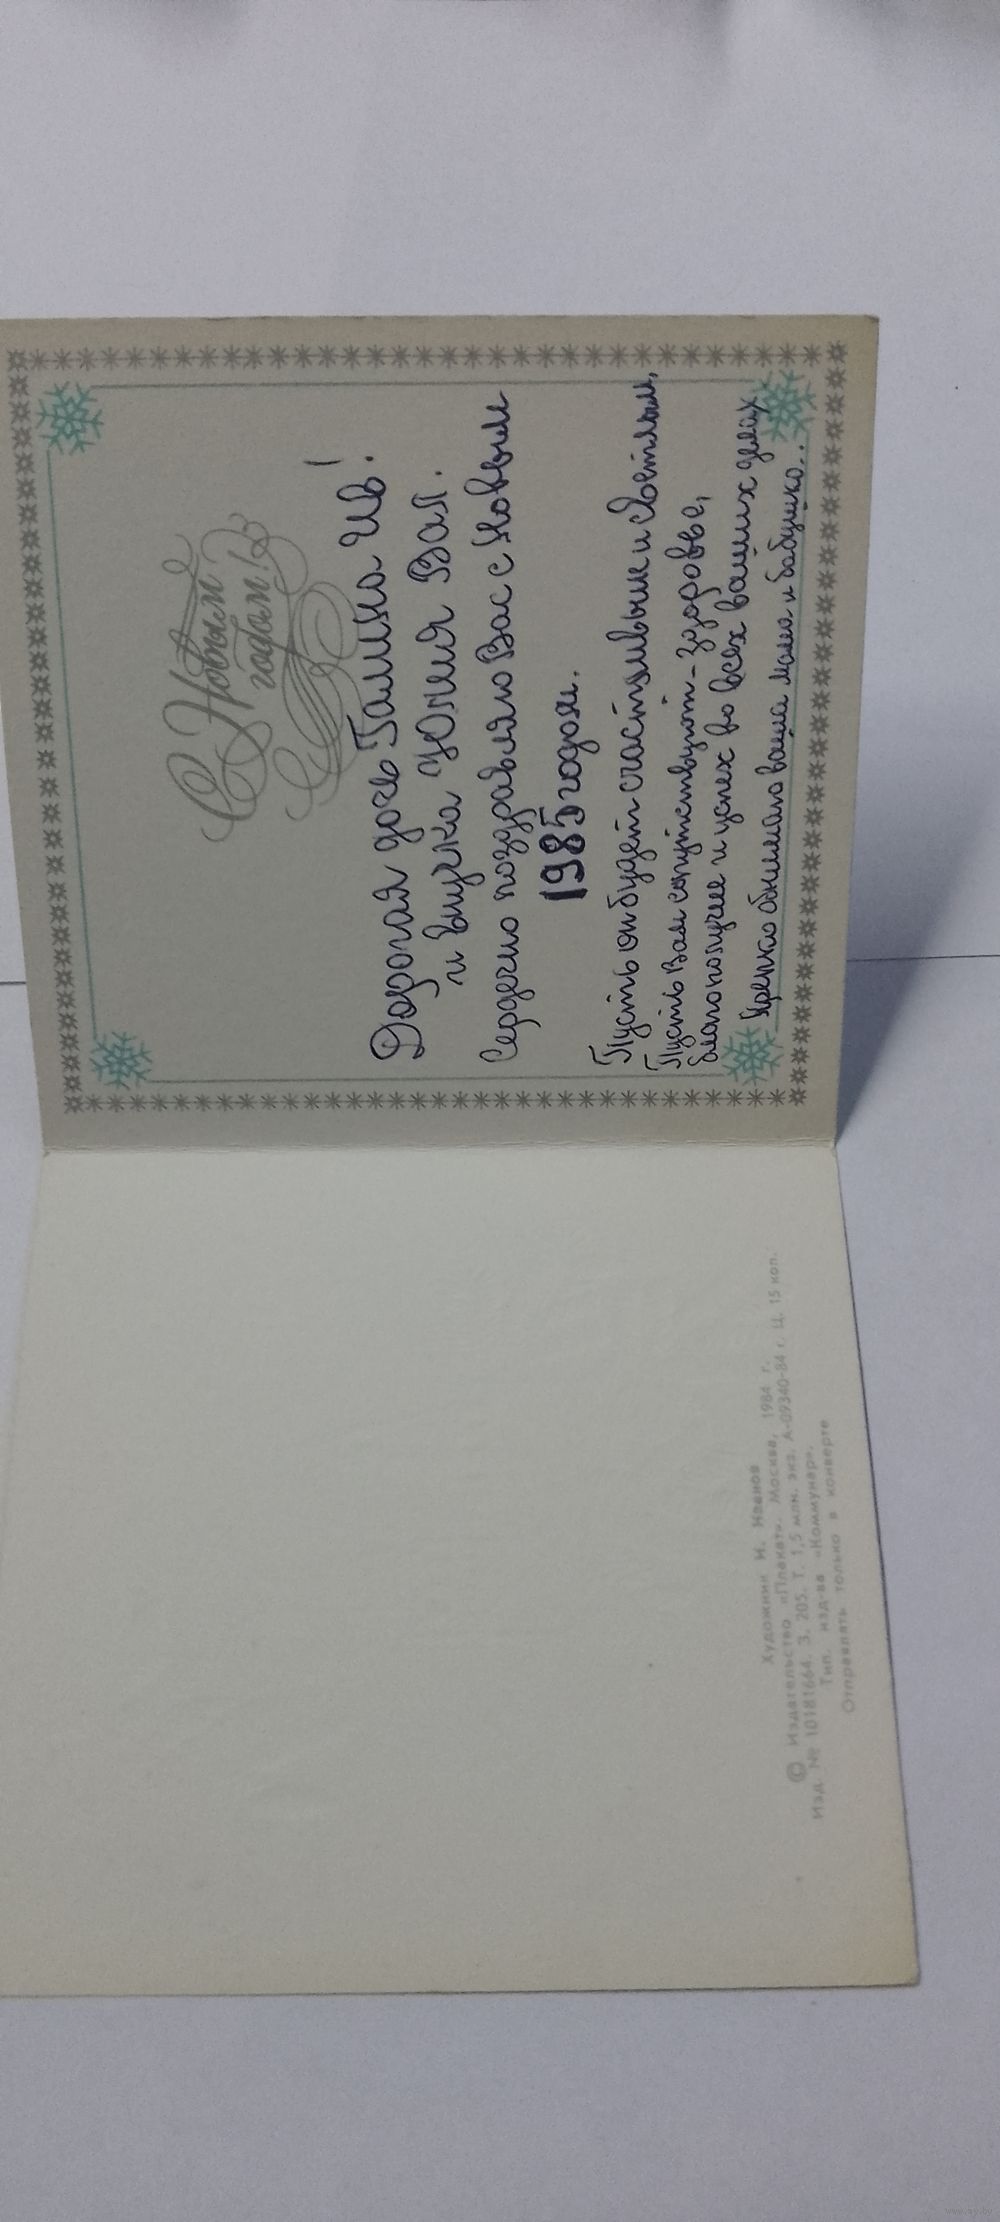 С Новым
годом!
Дорогая дочь Галина Ив!
и внучка Юлия Вал.
Сердечно поздравляю Вас с Новым
1985 годом.
Пусть он будет счастливым и светлым,
Пусть Вам сопутствуют - здоровье,
благополучие и успех во всех ваших делах
Крепко обнимаю ваша мама и бабушка...
Художник И. Иванов
© Издательство «Плакат». Москва, 1984 г.
Изд. № 10181664. З. 205. Т. 1,5 млн. экз. А-09340-84 г. Ц. 15 коп.
Тип. изд-ва «Коммунар».
Отправлять только в конверте